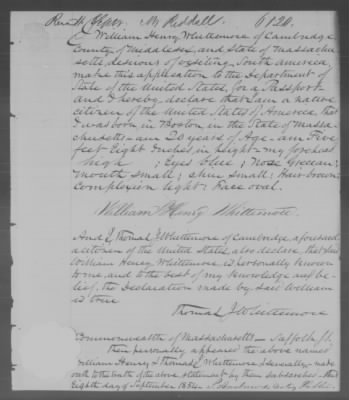 Mr Riddall 6120
I William Henry Whittemore of Cambridge
County of Middlesex, and State of Massachu
setts, desirous of visiting South America,
make this application to the Department of
State of the United States, for a Passport
and I hereby declare that I am a native
citizen of the United States of America, that
I was born in Boston, in the State of Massa
chusetts am 20 years of Age - am Five
feet Eight Inches, in height - my forehead
high ; Eyes blue ; nose Grecian ;
mouth small ; chin small ; Hair brown
Complexion light ; Face oval.
William Henry Whittemore.
And I, Thomas J Whittemore of Cambridge, aforesaid
a citizen of the United States, also declare, that said
William Henry Whittemore is personally known
to me, and to the best of my knowledge and be-
lief, the Declaration made by said William
is true
Thomas J Whittemore
Commonwealth of Massachusetts - Suffolk, ss.
Then personally appeared the above named
William Henry & Thomas J Whittemore & severally made
oath to the truth of the above statement by them subscribed this
Eighth day of September